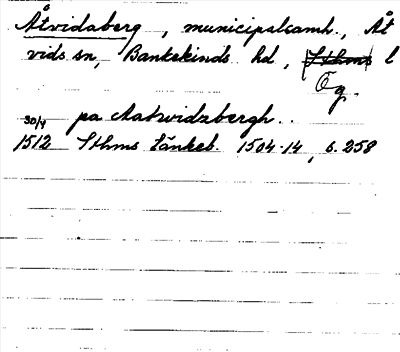 Åtvidaberg, municipalsamh., Åt
vids sn, Bankekinds hd, Sthms l
Ög.
på Aatvidzbergh..
30/4
1512 Sthms tänkeb. 1504-14, s. 258